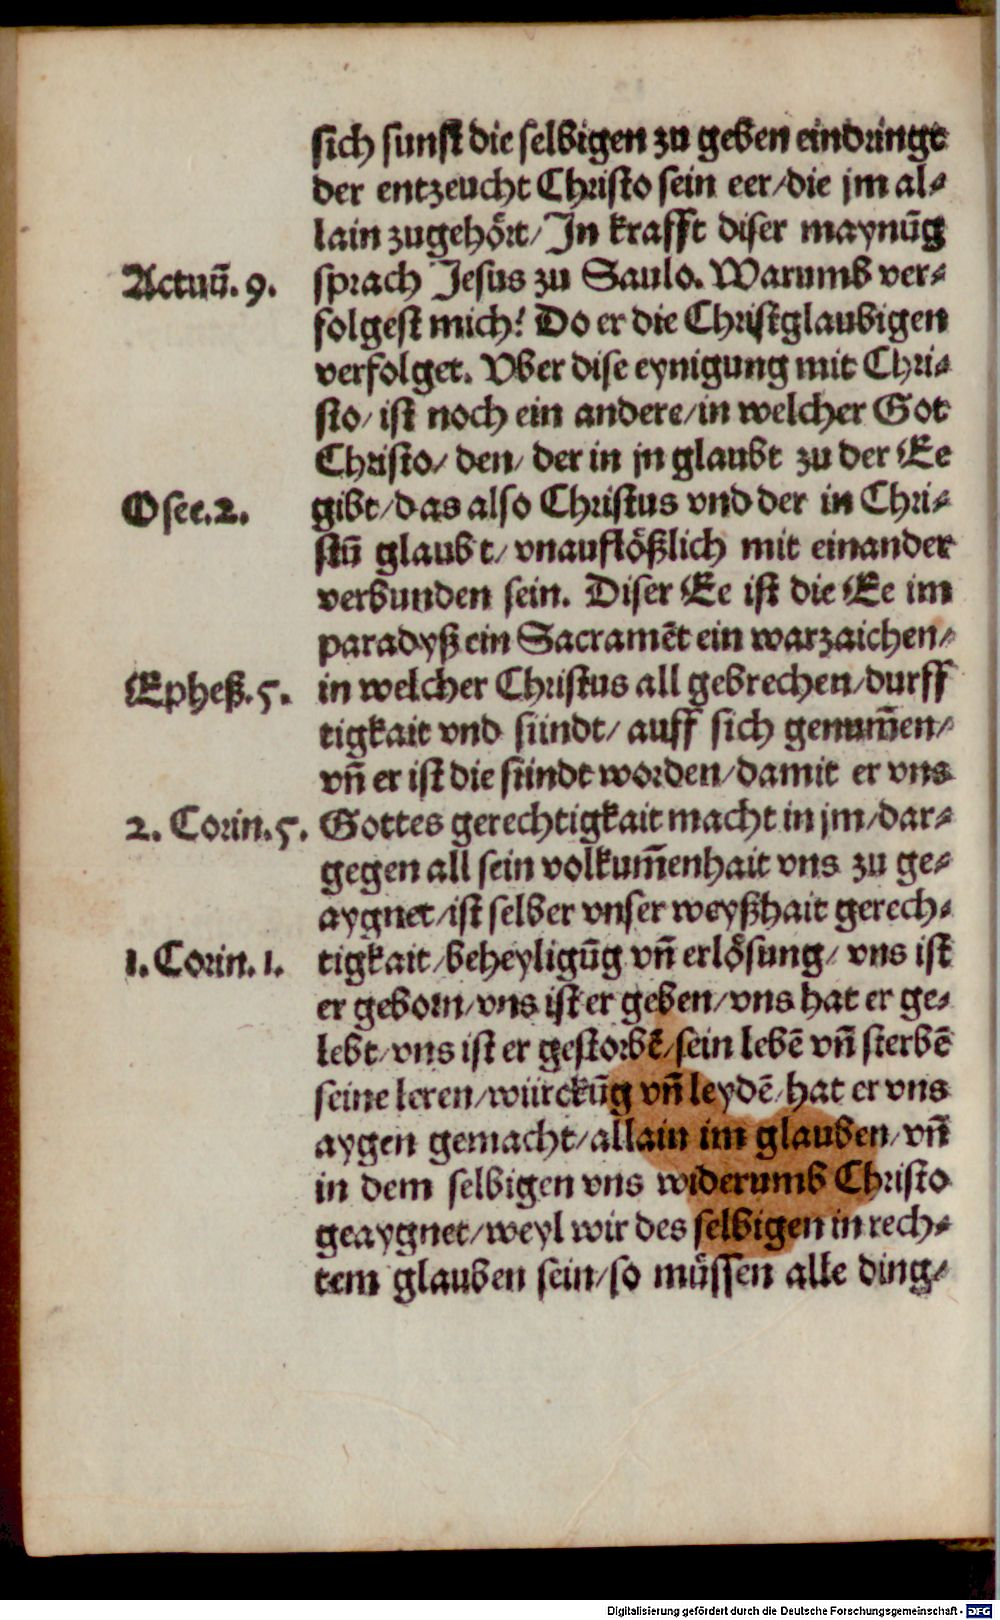 sich sunst die selbigen zu geben eindringt
der entzeucht Christo sein eer/die jm al⸗
lain zugehört/In krafft diser maynūg
Actuū. 9. sprach Jesus zu Saulo. Warumb ver⸗
folgest mich? Do er die Christglaubigen
verfolget. Vber dise eynigung mit Chri⸗
sto/ist noch ein andere/in welcher Got
Christo/den/der in jn glaubt zu der Ee
Osee.2. gibt/das also Christus vnd der in Chri⸗
stū glaubt/vnauflößlich mit einander
verbunden sein. Diser Ee ist die Ee im
paradyß ein Sacramēt ein warzaichen/
Epheß.5. in welcher Christus all gebrechen/durff
tigkait vnd sündt/auff sich genum̄en/
vn̄ er ist die sündt worden/damit er vns
2. Corin.5. Gottes gerechtigkait macht in jm/dar⸗
gegen all sein volkum̄enhait vns zu ge⸗
aygnet/ist selber vnser weyßhait gerech⸗
1. Corin. 1. tigkait/beheyligūg vn̄ erlösung/vns ist
er geborn/vns ist er geben/vns hat er ge⸗
lebt/vns ist er gestorbē/sein lebē vn̄ sterbē
seine leren/würckūg vn̄ leydē/hat er vns
aygen gemacht/allain im glauben/vn̄
in dem selbigen vns widerumb Christo
geaygnet/weyl wir des selbigen in rech⸗
tem glauben sein/so müssen alle ding/
Digitalisierung gefördert durch die Deutsche Forschungsgemeinschaft - DFG